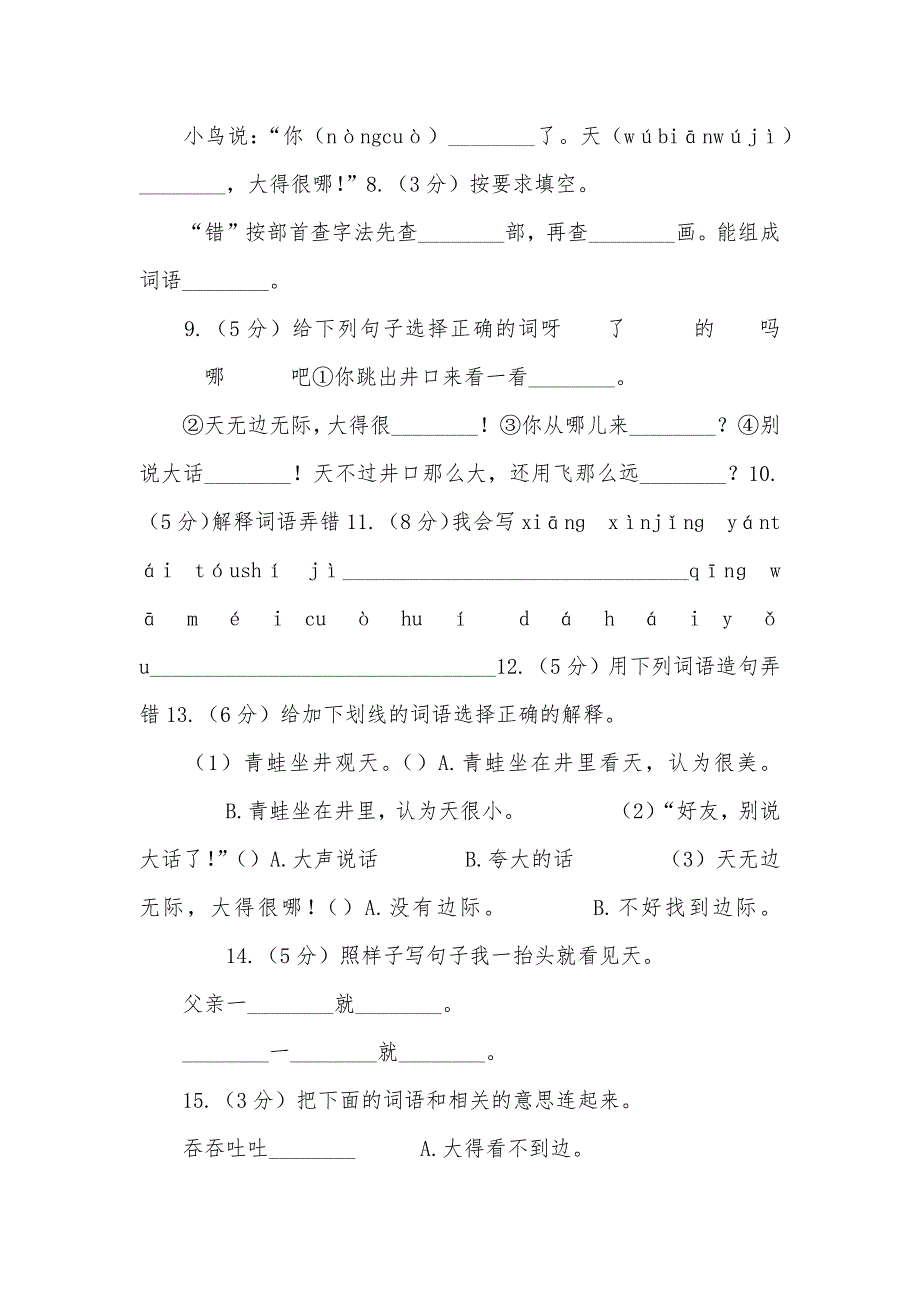 小鸟说：“你（nòngcuò）________了。天（wúbiānwújì）
________，大得很哪！”8.（3分）按要求填空。
“错”按部首查字法先查________部，再查________画。能组成
词语________。
9.（5分）给下列句子选择正确的词呀 了 的 吗
哪 吧①你跳出井口来看一看________。
②天无边无际，大得很________！③你从哪儿来________？④别
说大话________！天不过井口那么大，还用飞那么远________？10.
（5分）解释词语弄错11.（8分）我会写xiāng xìnjǐng yánt
ái tóushí jì________________________________qīng w
ā m é i cu ò hu í d á h á i y ǒ
u________________________________12.（5分）用下列词语造句弄
错13.（6分）给加下划线的词语选择正确的解释。
（1）青蛙坐井观天。（）A.青蛙坐在井里看天，认为很美。
B.青蛙坐在井里，认为天很小。 （2）“好友，别说
大话了！”（）A.大声说话 B.夸大的话 （3）天无边
无际，大得很哪！（）A.没有边际。 B.不好找到边际。
14.（5分）照样子写句子我一抬头就看见天。
父亲一________就________。
________一________就________。
15.（3分）把下面的词语和相关的意思连起来。
吞吞吐吐________ A.大得看不到边。